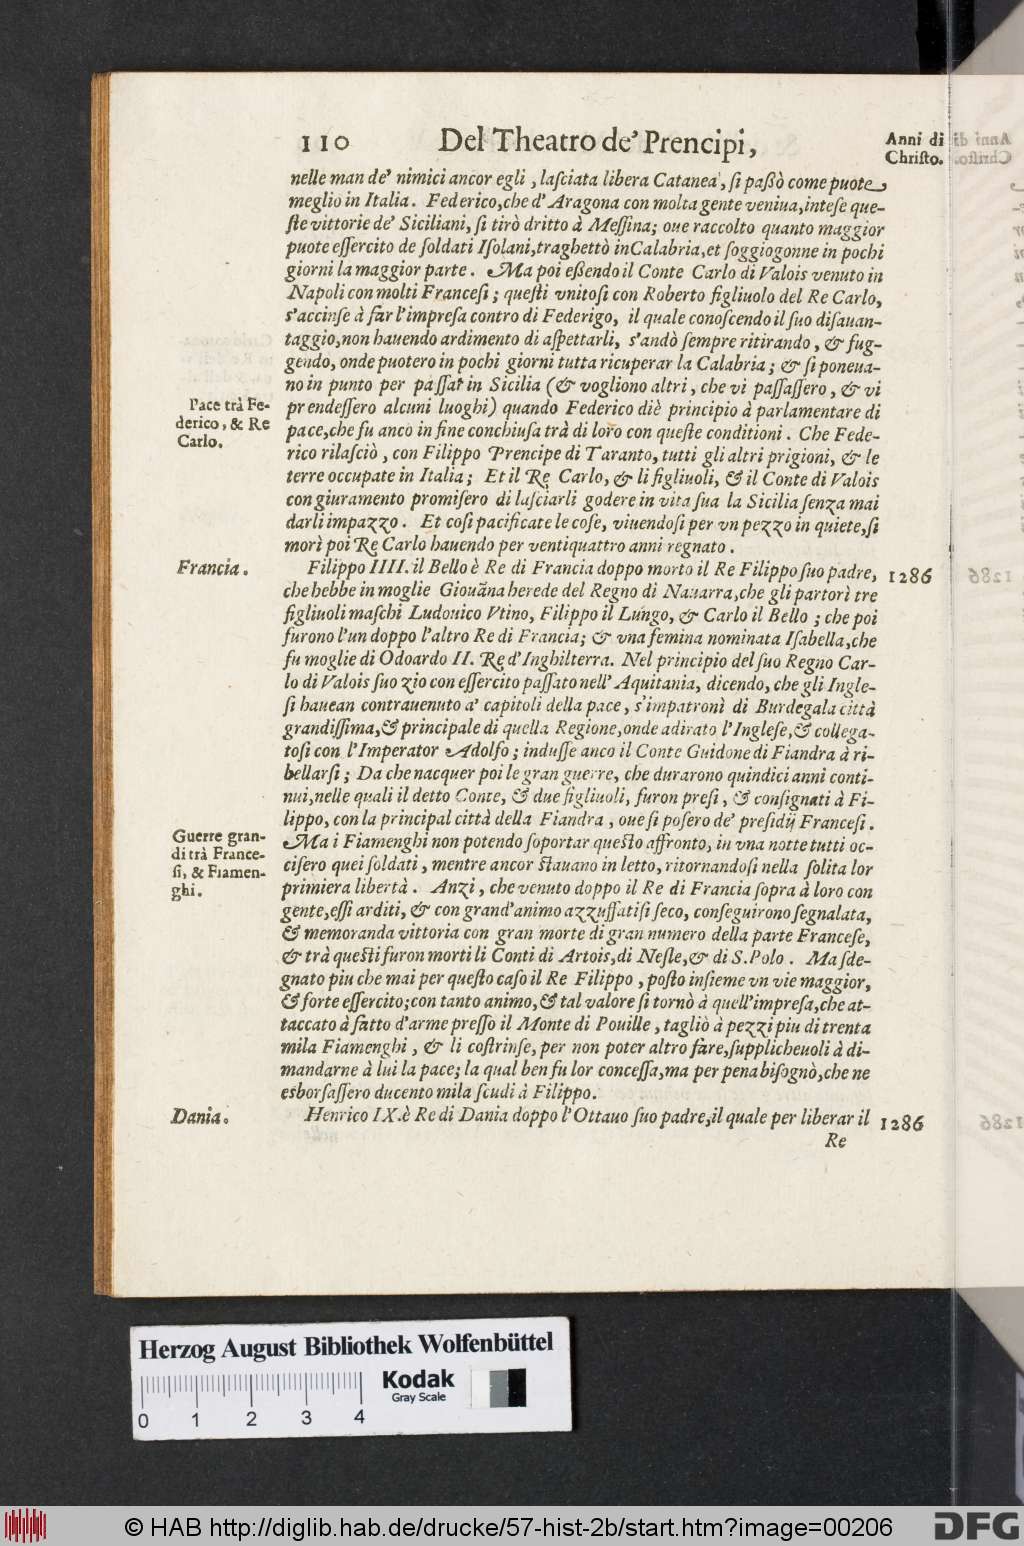 110 Del Theatro de' Prencipi,
Anni di
Christo.
nelle man de' nimici ancor egli, laſciata libera Catanea, ſi paßò come puote
meglio in Italia. Federico, che d'Aragona con molta gente veniua, inteſe que-
ſte vittorie de' Siciliani, ſi tirò dritto à Meſſina; oue raccolto quanto maggior
puote eſſercito de ſoldati Iſolani, traghettò in Calabria, et ſoggiogonne in pochi
giorni la maggior parte. Ma poi eßendo il Conte Carlo di Valois venuto in
Napoli con molti Franceſi; queſti vnitoſi con Roberto figliuolo del Re Carlo,
s'accinſe à far l'impreſa contro di Federigo, il quale conoſcendo il ſuo diſauan-
taggio, non hauendo ardimento di aſpettarli, s'andò ſempre ritirando, & fug-
gendo, onde puotero in pochi giorni tutta ricuperar la Calabria; & ſi poneua-
no in punto per paſſar in Sicilia (& vogliono altri, che vi paſſaſſero, & vi
prendeſſero alcuni luoghi) quando Federico diè principio à parlamentare di
pace, che fu anco in fine conchiuſa trà di loro con queſte conditioni. Che Fede-
rico rilaſciò, con Filippo Prencipe di Taranto, tutti gli altri prigioni, & le
terre occupate in Italia; Et il Re Carlo, & li figliuoli, & il Conte di Valois
con giuramento promiſero di laſciarli godere in vita ſua la Sicilia ſenza mai
darli impazzo. Et coſi pacificate le coſe, viuendoſi per vn pezzo in quiete, ſi
morì poi Re Carlo hauendo per ventiquattro anni regnato.
Pace trà Fe-
derico, & Re
Carlo.
Francia.
Filippo IIII. il Bello è Re di Francia doppo morto il Re Filippo ſuo padre, 1286
che hebbe in moglie Giouãna herede del Regno di Nauarra, che gli partorì tre
figliuoli maſchi Ludouico Vtino, Filippo il Lungo, & Carlo il Bello; che poi
furono l'un doppo l'altro Re di Francia; & vna femina nominata Iſabella, che
fu moglie di Odoardo II. Re d'Inghilterra. Nel principio del ſuo Regno Car-
lo di Valois ſuo zio con eſſercito paſſato nell'Aquitania, dicendo, che gli Ingle-
ſi hauean contrauenuto a' capitoli della pace, s'impatronì di Burdegala città
grandiſſima, & principale di quella Regione, onde adirato l'Ingleſe, & collega-
toſi con l'Imperator Adolfo; induſſe anco il Conte Guidone di Fiandra à ri-
bellarſi; Da che nacquer poi le gran guerre, che durarono quindici anni conti-
nui, nelle quali il detto Conte, & due figliuoli, furon preſi, & conſignati à Fi-
lippo, con la principal città della Fiandra, oue ſi poſero de' preſidij Franceſi.
Ma i Fiamenghi non potendo ſoportar queſto affronto, in vna notte tutti oc-
ciſero quei ſoldati, mentre ancor ſtauano in letto, ritornandoſi nella ſolita lor
primiera libertà. Anzi, che venuto doppo il Re di Francia ſopra à loro con
gente, eſſi arditi, & con grand'animo azzuffatiſi ſeco, conſeguirono ſegnalata,
& memoranda vittoria con gran morte di gran numero della parte Franceſe,
& trà queſti furon morti li Conti di Artois, di Neſle, & di S. Polo. Ma ſde-
gnato piu che mai per queſto caſo il Re Filippo, poſto inſieme vn vie maggior,
& forte eſſercito; con tanto animo, & tal valore ſi tornò à quell'impreſa, che at-
taccato à fatto d'arme preſſo il Monte di Pouille, tagliò à pezzi piu di trenta
mila Fiamenghi, & li coſtrinſe, per non poter altro fare, ſupplicheuoli à di-
mandarne à lui la pace; la qual ben fu lor conceſſa, ma per pena biſognò, che ne
esborſaſſero ducento mila ſcudi à Filippo.
Guerre gran-
di trà France-
ſi, & Fiamen-
ghi.
Dania.
Henrico IX. è Re di Dania doppo l'Ottauo ſuo padre, il quale per liberar il 1286
Re
Herzog August Bibliothek Wolfenbüttel
Kodak
Gray Scale
0 1 2 3 4
© HAB http://diglib.hab.de/drucke/57-hist-2b/start.htm?image=00206
DFG